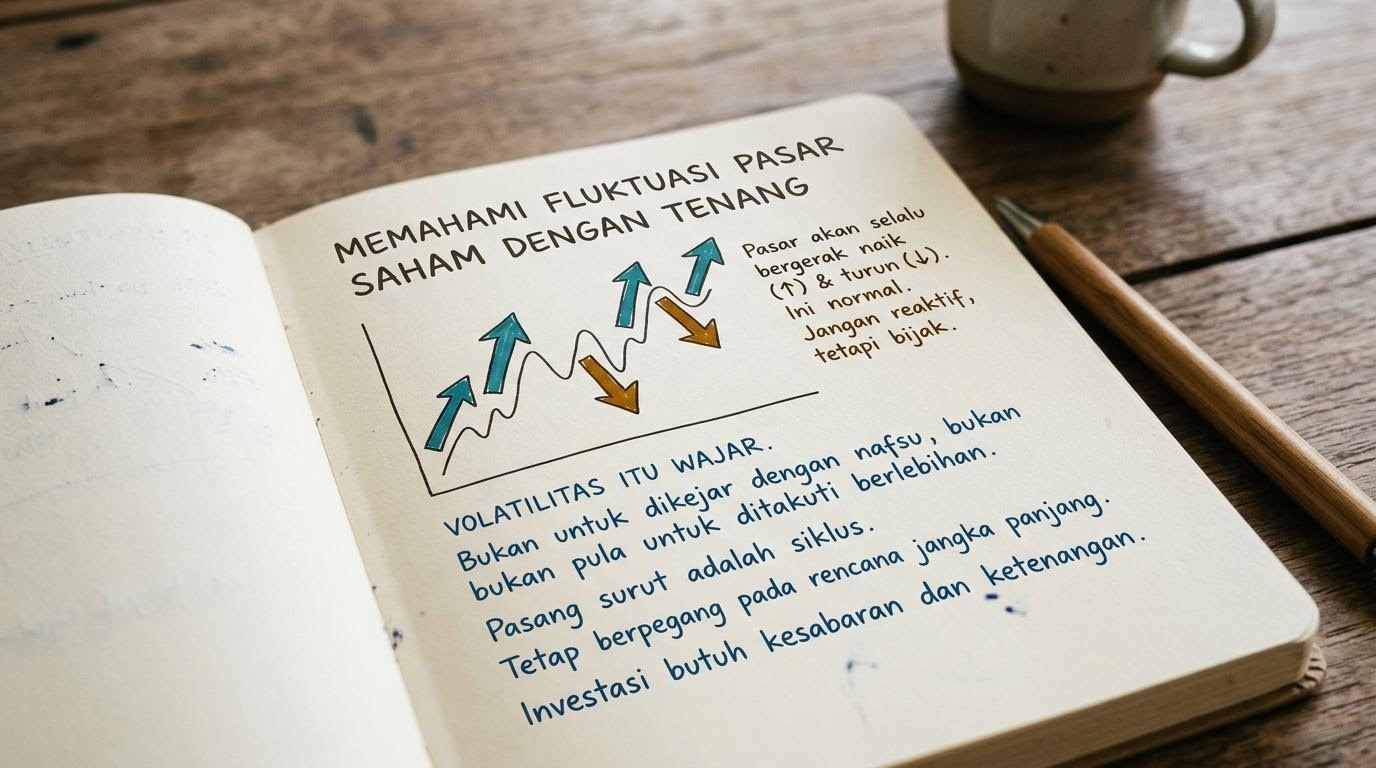 MEMAHAMI FLUKTUASI PASAR
SAHAM DENGAN TENANG
Pasar akan selalu
bergerak naik
(↑) & turun (↓).
Ini normal.
Jangan reaktif,
tetapi bijak.
VOLATILITAS ITU WAJAR.
Bukan untuk dikejar dengan nafsu, bukan
bukan pula untuk ditakuti berlebihan.
Pasang surut adalah siklus.
Tetap berpegang pada rencana jangka panjang.
Investasi butuh kesabaran dan ketenangan.